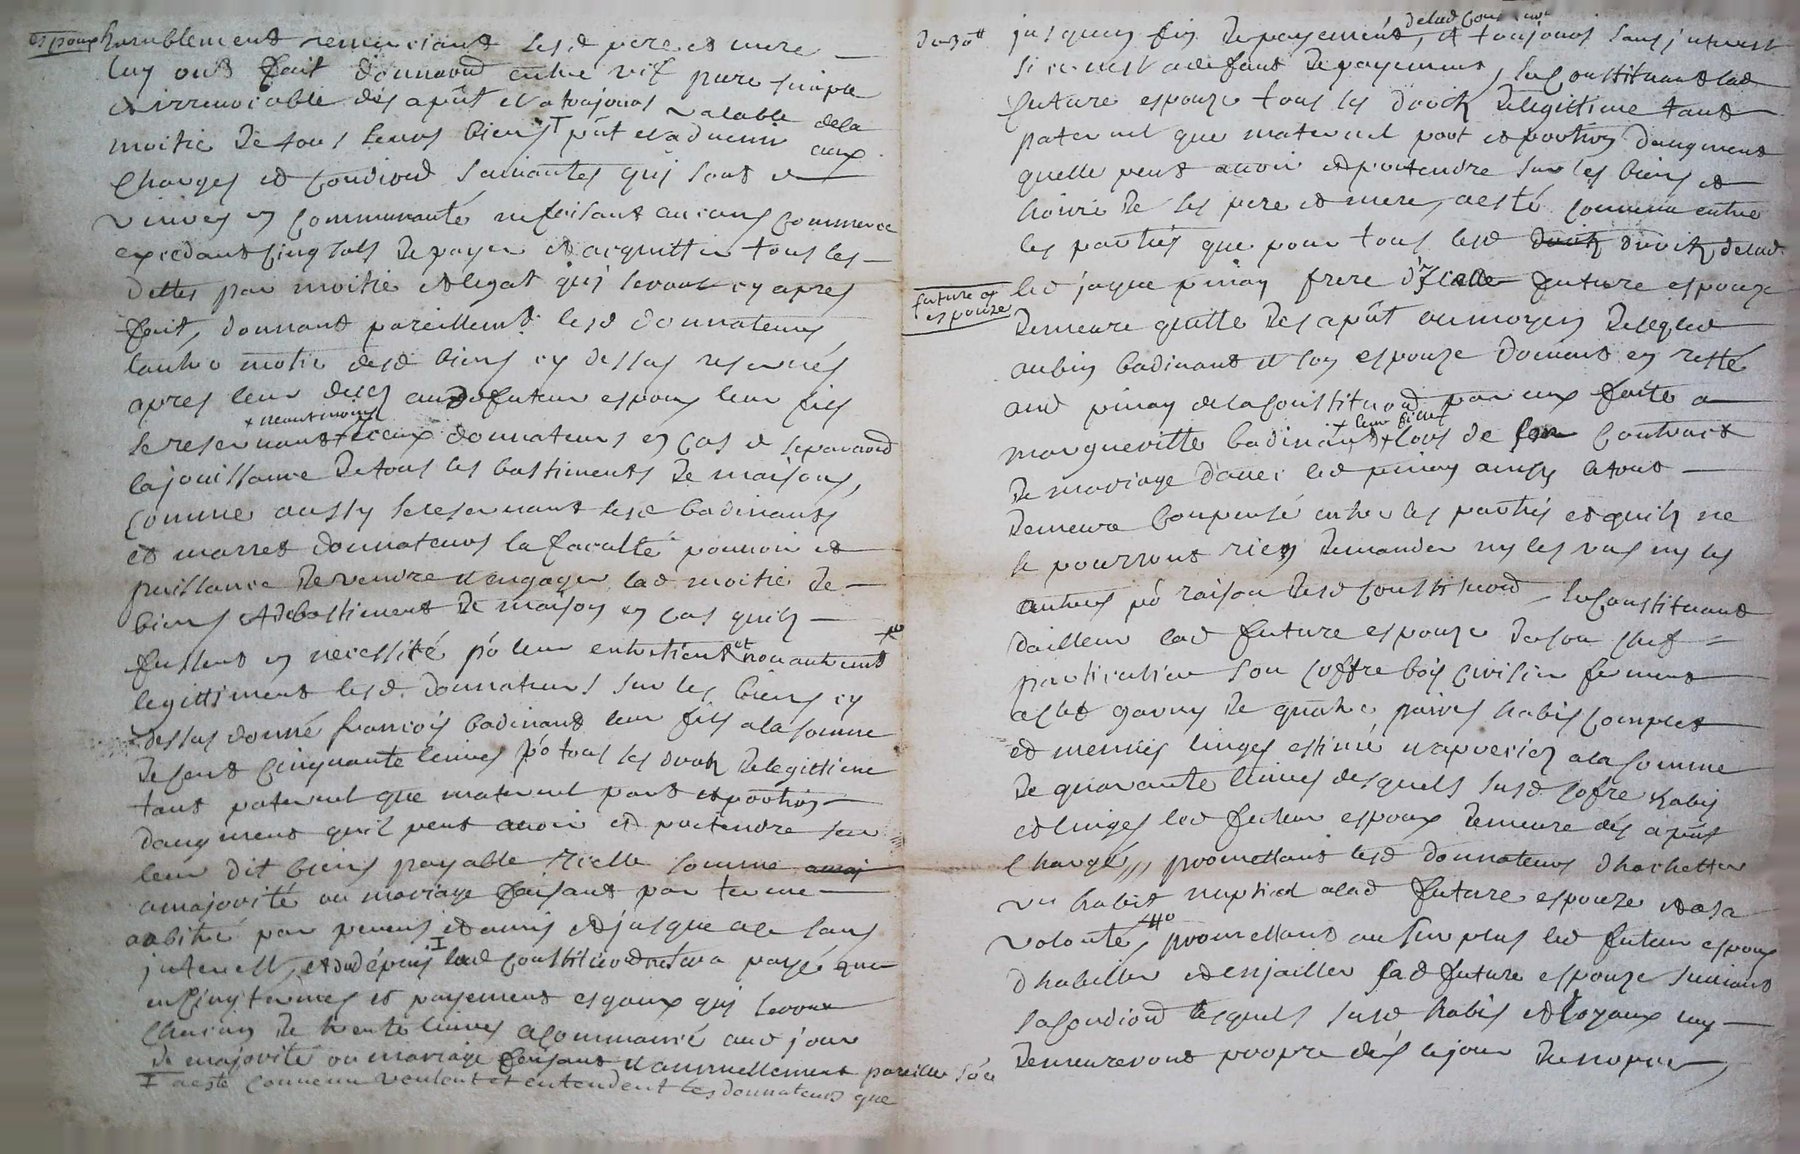 espoux humblement remerciant lesd pere et mere
luy ont fait donnaond entre vif pure simple
et irrevocable dés apńt et a toujours valable dela
moitie de tous leurs biens pńt et advenir aux
charges et condiond suivantes qui sont de
vivres en communauté ne faisant aucung commerce
excedant cinq sols de payer et acquitter tous les
dettes par moitie et legat qui seront cy apres
fait, donnant pareillemt lesd donnateurs
lautre motie desd biens cy dessus reservés
apres leur decez aud futeur espoux leur fils
se reservant × neantmoins iceux donnateurs en cas de separaond
la jouissance de tous les bastiments de maisons,
comme aussy se reservant lesd badinants
et marret donnateurs la faculté pouvoir et
puissance de vendre et engager lad moitie de
biens et de bastiment de maison en cas quilz
fussent en necessité po leur entretient et non autremt
legittiment lesd. donnateurs sur les biens cy
dessus donné francois badinant leur fils a la somme
de cent cinquante livres po tous les droitz de legittime
tant paternel que maternel part et portion
daugment quil peut avoir et pretendre sur
leur dit biens payable icelle somme
a majorité ou mariage faisant par terme
arbitré par parens et amis et jusque a ce sans
interest, et dud
en cinq termes et payement esgaux qui seront
chacun de trente livres a commancé aud jour
de majorité ou mariage faisant et annuellement pareille soe
I a esté convenu veulent et entendent les donnateurs que
de 30tt jusques fin de payement, et toujours sans interest
si ce nest a defaut de payement, se constituant lad
future espouze tous les droitz de legittime tant
paternel que maternel part et portion daugment
quelle peut avoir et pretendre sur les biens et
hoirie de ses pere et mere, a esté convenu entre
les parties que pour tous lesd droitz delad
future espouze led jaque pinay frere dicelle future espouze
demeure quitte des apńt au moyen de ce que
aubin badinant et son espouze doivent en reste
aud pinay de la constituond par eux faite a
margueritte badinant × leur fille lors de son contract
de mariage davec led pinay ainsy le tout
demeure compensé entre les parties et quilz ne
se pourront rien demander ny les uns ny les
autres po raison desd constituond, se constituant
dailleur lad future espouze de son chef
particulier son coffre bois cerisier fermant
a clef garny de quatre paires habis complet
et menus linges estimé et apreciez a la somme
de quarante livres desquels susd cofre habis
et linges led futeur espoux demeure dés apńt
chargé, promettant lesd donnateurs dhachetter
un habit nuptial alad future espouze et a sa
volonté, promettant au surplus led futeur espoux
dhabiller et enjailler sad future espouze suivant
sa condiond lesquels susd habis et joyaux luy
demeureront propre dés le jour des nopces